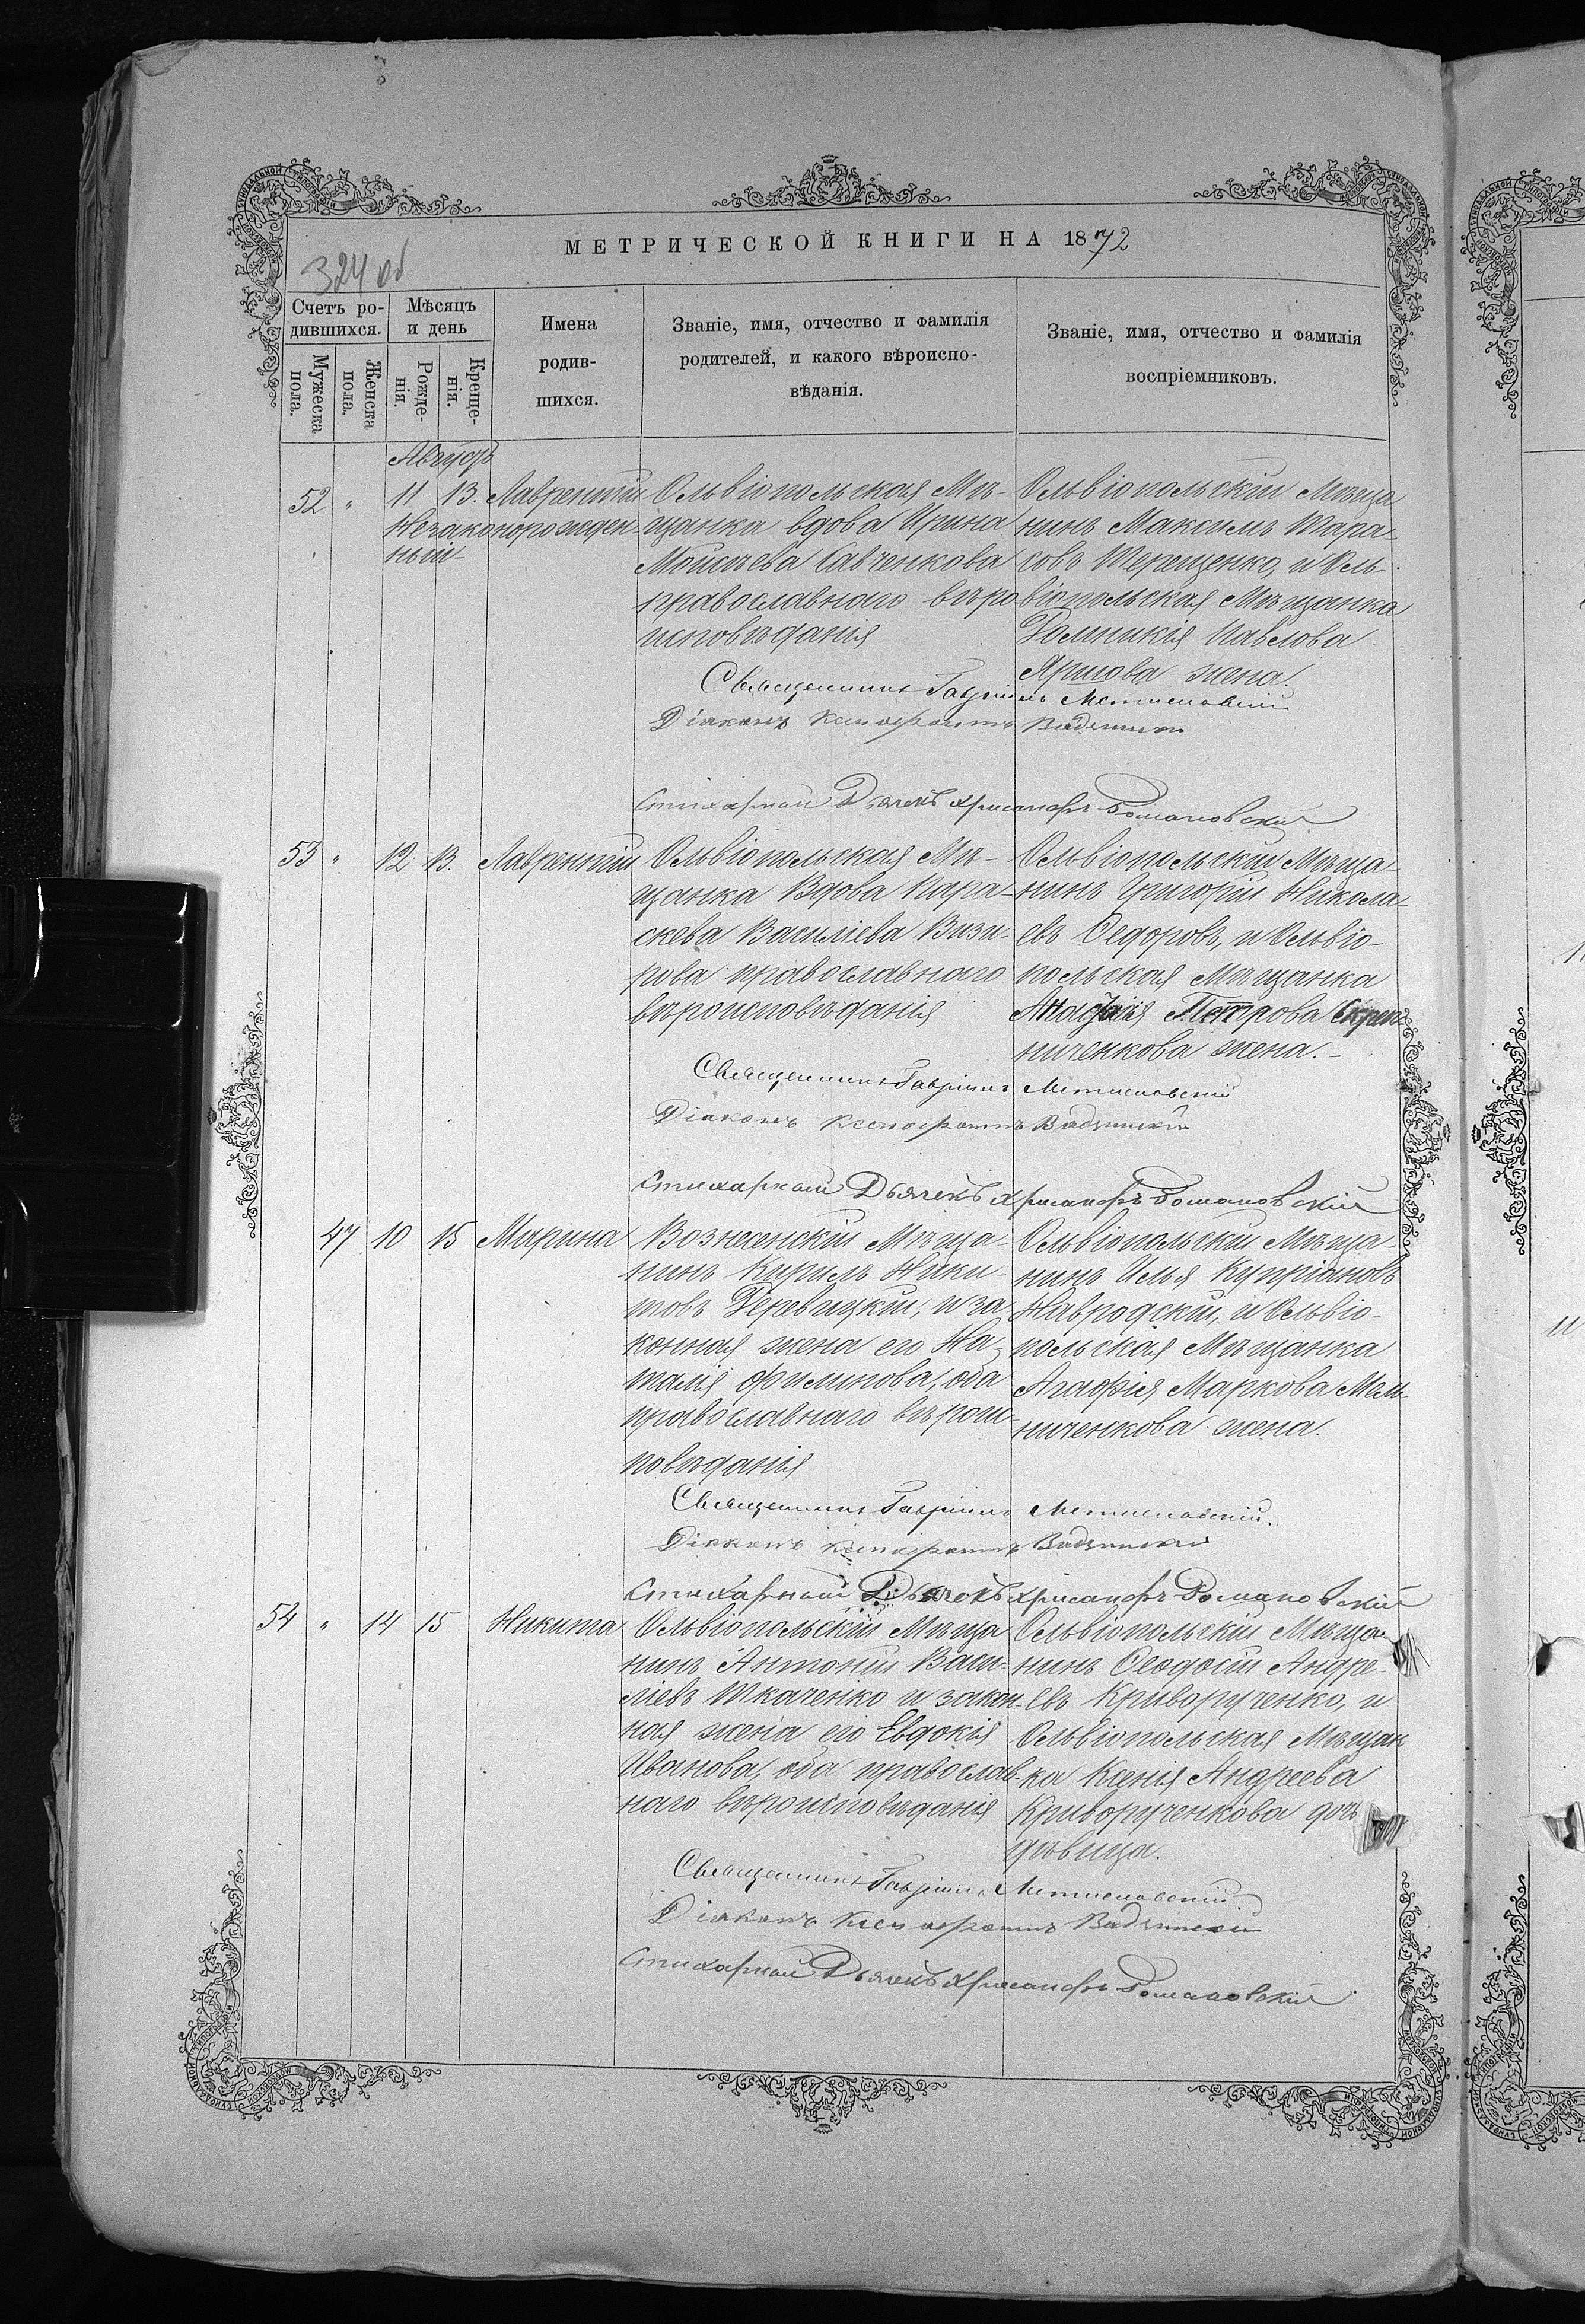 324 об
МЕТРИЧЕСКОЙ КНИГИ НА 1872
Счетъ ро-
дившихся.
Мужеска
пола.
Женска
пола.
Мѣсяцъ
и день
Рожде-
нія.
Креще-
нія.
Имена
родив-
шихся.
Званіе, имя, отчество и фамилія
родителей, и какого вѣроиспо-
вѣданія.
Званіе, имя, отчество и фамилія
воспріемниковъ.
Августъ
52 " 11 13. Лаврентій
Незаконорожден-
ный
Ольвіопольская Мѣ-
щанка вдова Ирина
Моисѣева Савченкова
православнаго вѣро
исповѣданія
Ольвіопольскій Мѣща
нинъ Максимъ Тара-
совъ Терещенко, и Оль-
віопольская Мѣщанка
Домникія Павлова
Ярмова жена.
Священникъ Гавріилъ Мстиславскій
Діаконъ Ксенофонтъ
Стихарный Дьячекъ Хрисанфъ Романовскій
53 " 12 13. Лаврентій
Ольвіопольская Мѣ-
щанка Вдова Пара-
скева Василіева Визи-
рова православнаго
вѣроисповѣданія
Ольвіопольскій Мѣща-
нинъ Григорій Никола-
евъ Федоровъ, и Ольвіо-
польская Мѣщанка
Петрова
ниченкова жена.-
Священникъ Гавріилъ Мстиславскій
Діаконъ Ксенофонтъ
Стихарный Дьячекъ Хрисанфъ Романовскій
47 10 15 Марина
Вознесенскій Мѣща-
нинъ Кирилъ Ники-
товъ Деревицкій, и за-
конная жена его На-
талія Филипова, оба
православнаго вѣроис-
повѣданія
Ольвіопольскій Мѣща
нинъ Илья Купріановъ
Навродскій, и Ольвіо-
польская Мѣщанка
Агафія Маркова Мель-
ниченкова жена.
Священникъ Гавріилъ Мстиславскій.
Діаконъ Ксенофонтъ
Стихарный Дьячекъ Хрисанфъ Романовскій
54 " 14 15 Никита
Ольвіопольскій Мѣща
нинъ Антоній Васи-
ліевъ Ткаченко и закон-
ная жена его Евдокія
Иванова, оба православ-
наго вѣроисповѣданія
Ольвіопольскій Мѣща
нинъ Феодосій Андре-
евъ Криворученко, и
Ольвіопольская Мѣщан
ка Ксенія Андреева
Криворученкова дочь
дѣвица.
Священникъ Гавріилъ Мстиславскій
Діаконъ Ксенофонтъ
Стихарный Дьячекъ Хрисанфъ Романовскій